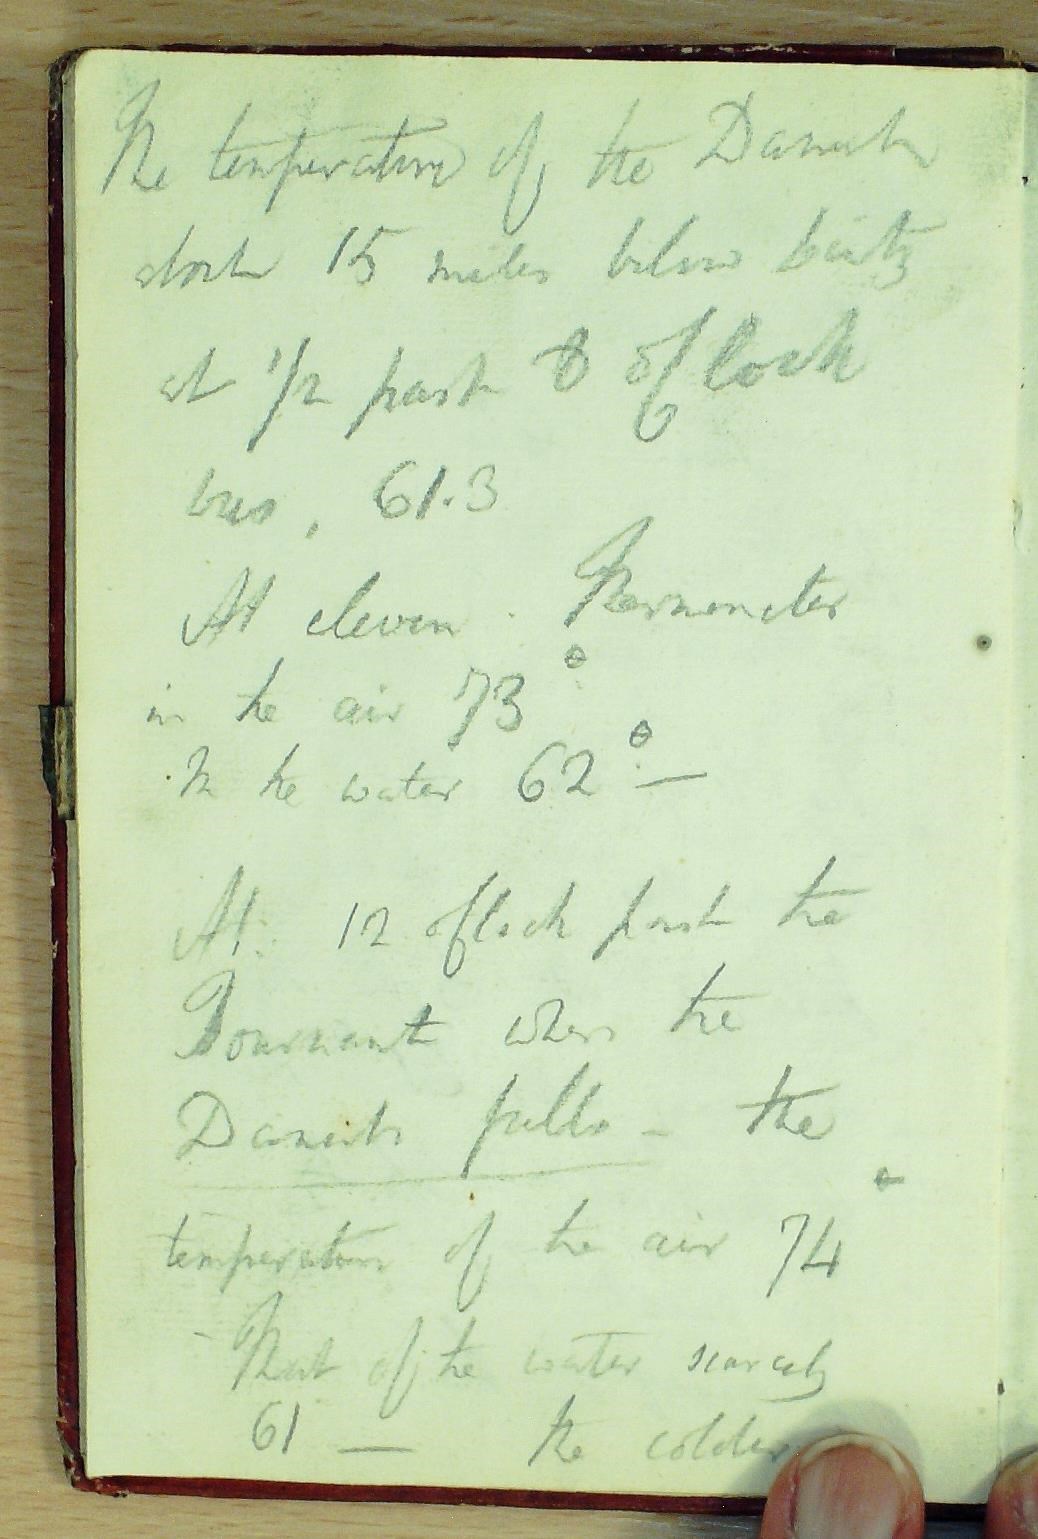 The temperature of the Danube
about 15 miles below Lintz
at 1/2 past 8 o'clock
was, 61.3
At eleven. Thermometer
in the air 73°
In the water 62° —
At. 12 o'clock past the
Tournant where the
Danube falls - the
temperature of the air 74°
- That of the water scarcely
61 — the colder